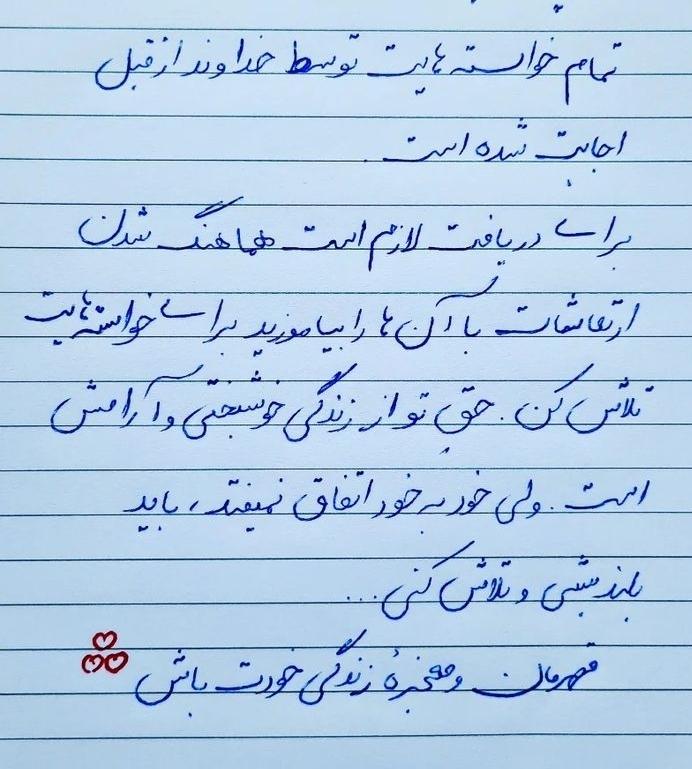 تمام خواسته هایت توسط خداوند از قبل
اجابت شده است.
برای دریافت لازم است هماهنگ شدن
ارتعاشات با آن ها را بیاموزید برای خواسته هایت
تلاش کن. حق تو از زندگی خوشبختی و آرامش
است. ولی خود به خود اتفاق نمیفتد، باید
بلند بشی و تلاش کنی...
قهرمان و معجزهٔ زندگی خودت باش